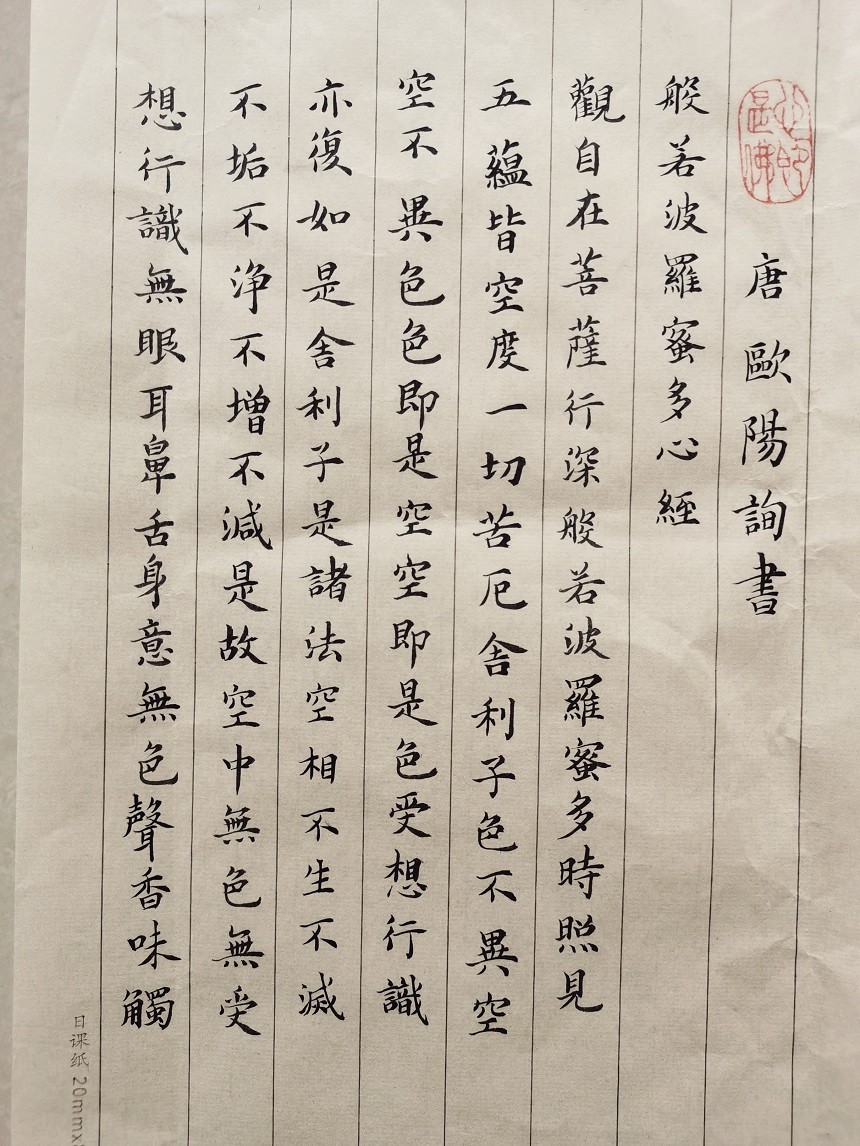 心即是佛
唐歐陽詢書
般若波羅蜜多心經
觀自在菩薩行深般若波羅蜜多時照見
五蘊皆空度一切苦厄舍利子色不異空
空不異色色即是空空即是色受想行識
亦復如是舍利子是諸法空相不生不滅
不垢不浄不增不減是故空中無色無受
想行識無眼耳鼻舌身意無色聲香味觸
日课纸 20mmx